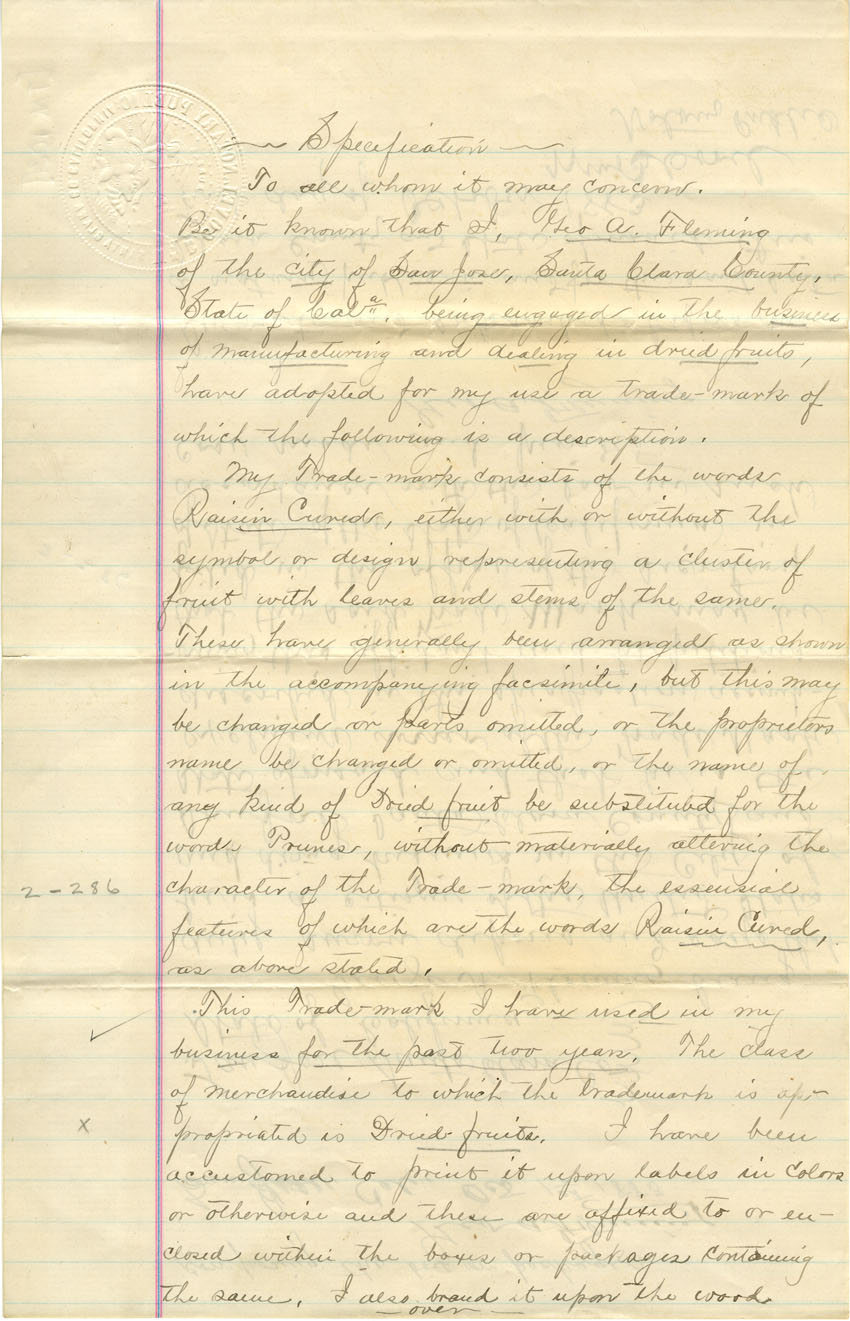 Specification
To all whom it may concern.
Be it known that I, Geo A. Fleming
of the city of San Jose, Santa Clara County,
State of Cala., being engaged in the business
of manufacturing and dealing in dried fruits,
have adopted for my use a trade-mark of
which the following is a description.
My Trade-mark consists of the words
Raisin Cured, either with or without the
symbol or design representing a cluster of
fruit with leaves and stems of the same.
These have generally been arranged as shown
in the accompanying facsimile, but this may
be changed or parts omitted, or the proprietors
name be changed or omitted, or the name of
any kind of Dried fruit be substituted for the
word Prunes, without materially altering the
2-286 character of the Trade-mark, the essential
features of which are the words Raisin Cured,
as above stated.
This Trade-mark I have used in my
business for the past two years. The class
of merchandise to which the trademark is ap-
x propriated is Dried fruits. I have been
accustomed to print it upon labels in colors
or otherwise and these are affixed to or en-
closed within the boxes or packages containing
the same. I also brand it upon the wood
over